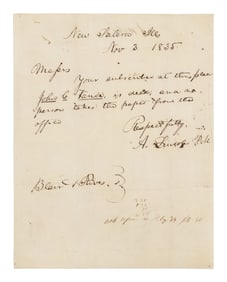 New Salem Ills
Nov 3 1835
Messrs
Your subscriber at this place
John C. Vance, is dead, and no
person takes the paper from the
office
Respectfully
A. Lincoln P.M.
Blair & Rives